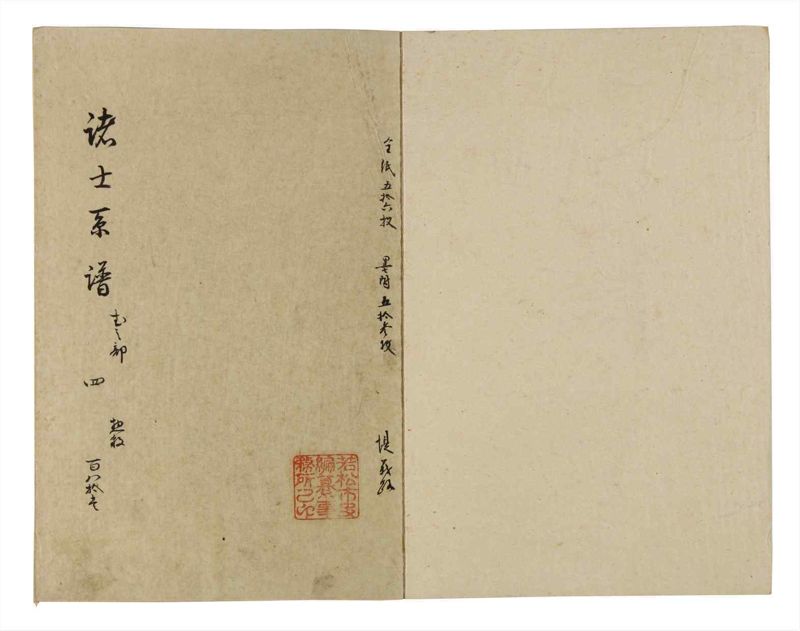 全紙五拾六枚 墨附五拾参枚 堤
若松市史
編纂事
務所之印
諸士系譜 む之部 四 惣数 百八拾